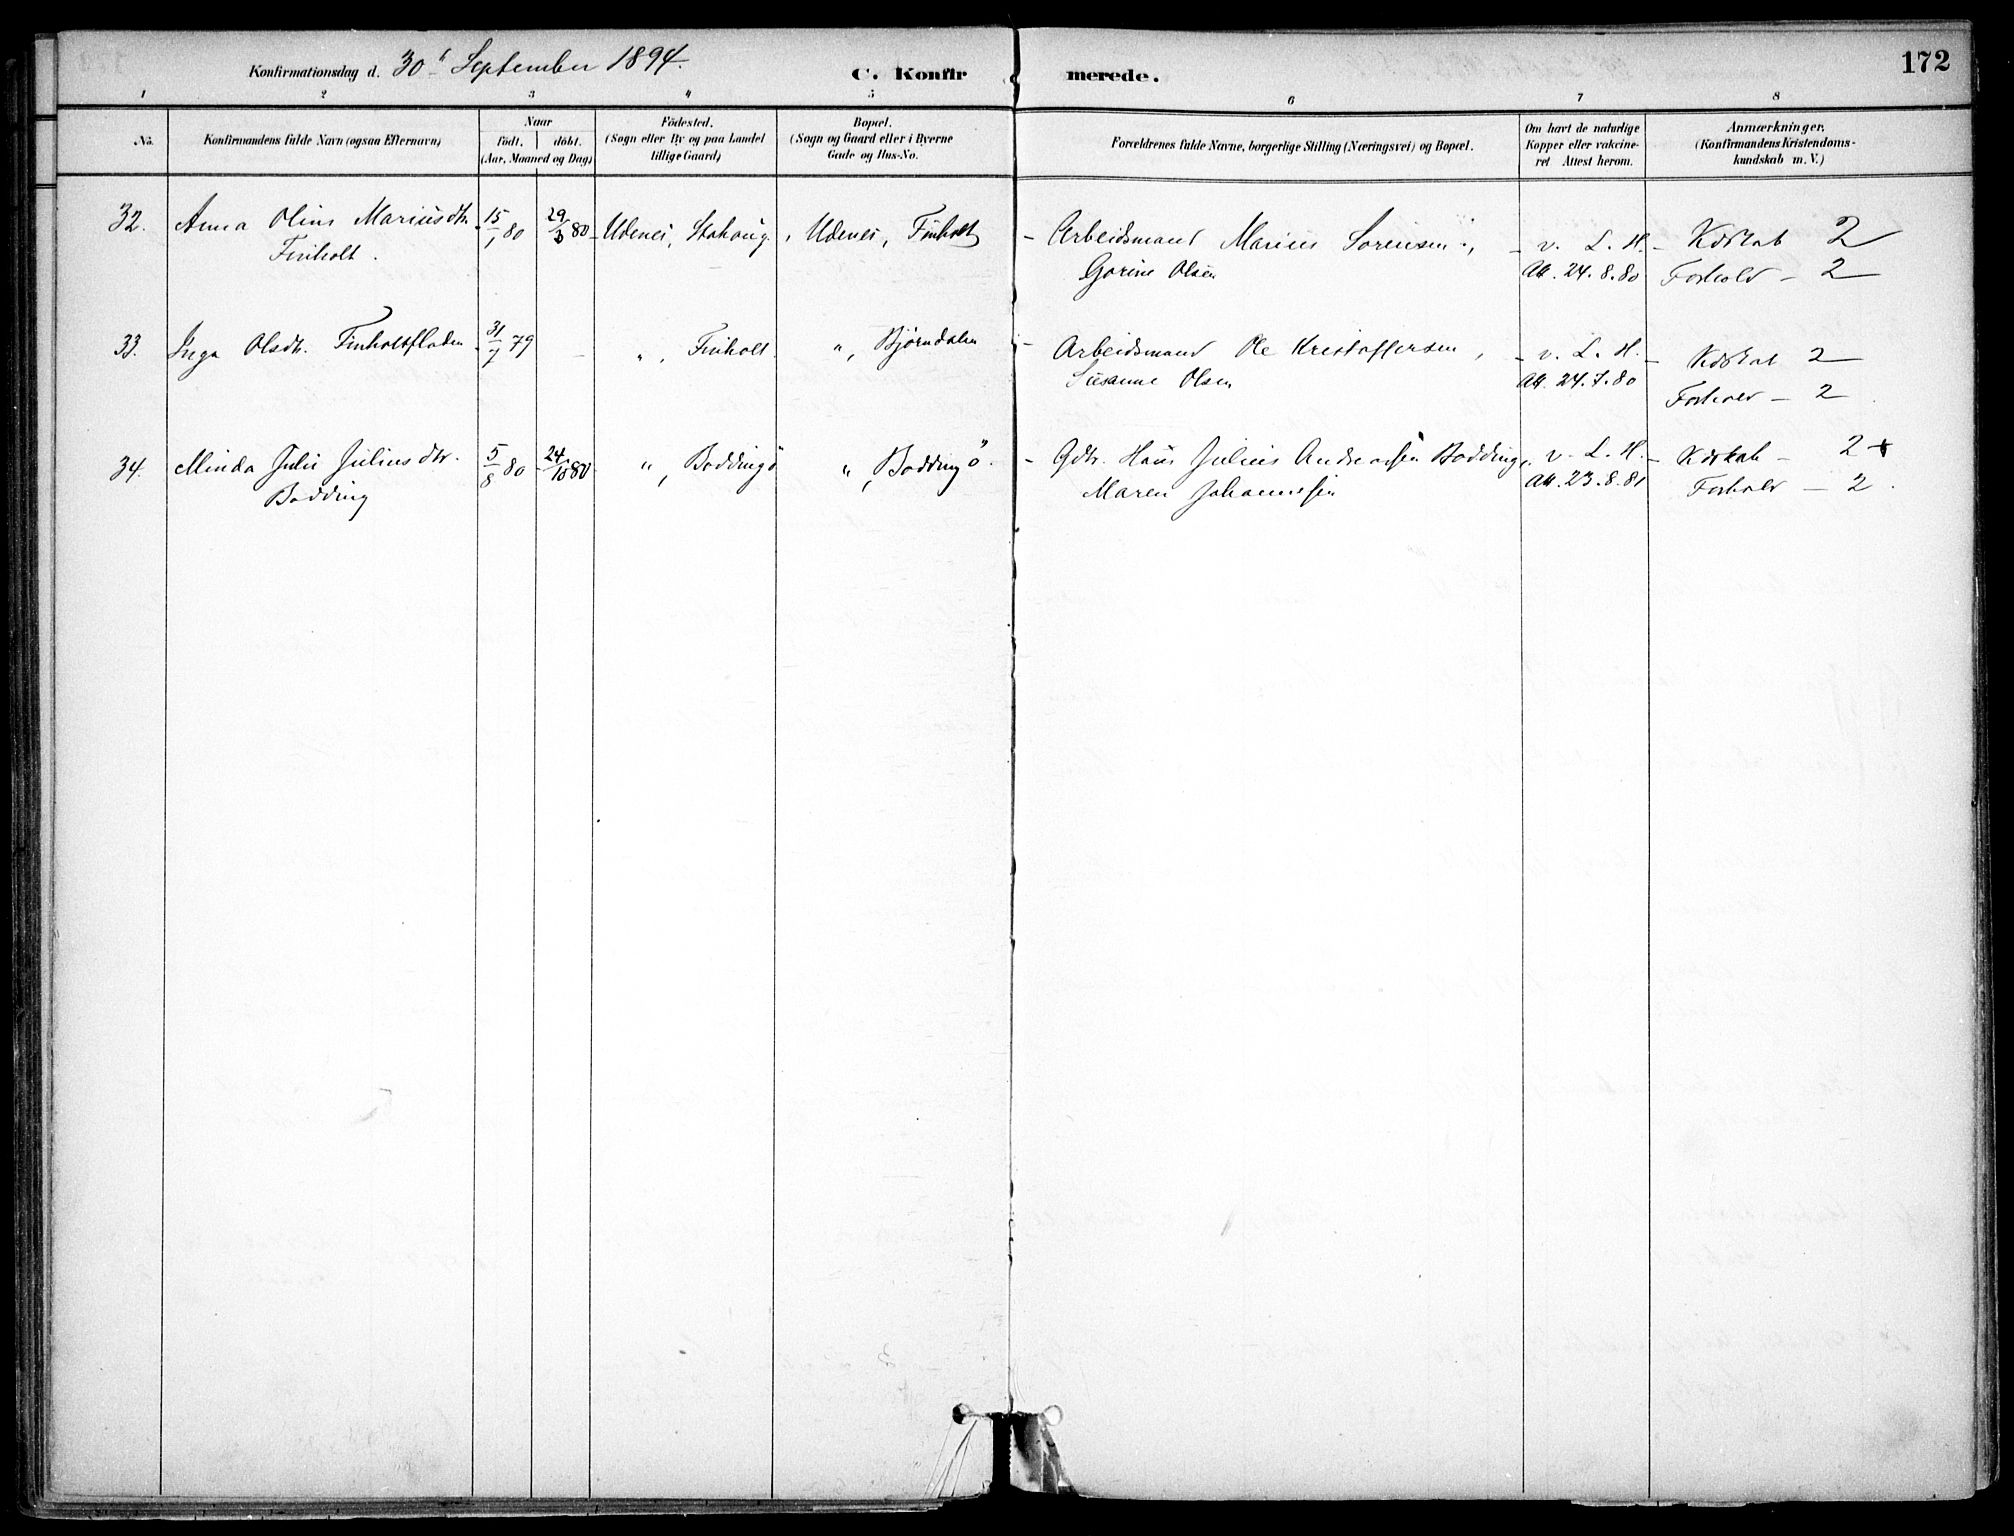 Konfirmationsdag d. 30t September 1894.
C. Konfirmerede.
172
1 2 3 4 5 6 7 8
No. Konfirmandens fulde Navn (ogsaa Efternavn)
Naar
födt. döbt.
(Aar, Maaned og Dag)
Födested.
(Sogn eller By og paa Landet
tillige Gaard)
Bopæl.
(Sogn og Gaard eller i Byerne
Gade og Hus-No.
Forældrenes fulde Navne, borgerlige Stilling (Næringsvei) og Bopæl.
Om havt de naturlige
Kopper eller vakcine-
ret Attest herom.
Anmærkninger.
(Konfirmandens Kristendoms-
kundskab m. V.)
32. Anna Oline Mariusdtr. 15/1 80 29/3 80 Udenes, Stahaug. Udenes, Finholt - Arbeidsmand Marius Sorensen, - v. L. H. - Kdskab 2
Finholt. Gorine Olsen Att. 24.8.80 Forhold - 2
33. Inga Olsdtr. Finholtfladen 31/7 79 - " , Finholt. " , Bjørndalen - Arbeidsmand Ole Kristoffersen, - v. L. H. - Kdskab 2
Susanne Olsen Att. 24.7.80 Forhold - 2
34. Minda Julie Juliusdtr. 5/8 80 24/10 80 " , Boddingö " , Boddingö. - Gdbr. Hans Julius Andreassen Bodding, v. L. H. - Kdskab - 2+
Bodding Maren Johannessen Att. 23.8.81 Forhold - 2.